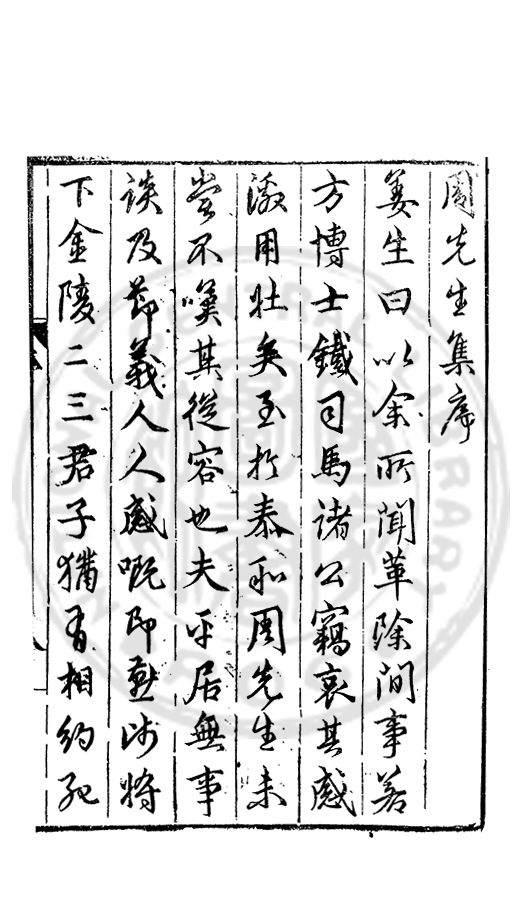 周先生集序
姜生曰以余所聞革除間事若
方博士鐵司馬諸公竊哀其感
激用壯矣至於泰和周先生未
嘗不嘆其從容也夫平居無事
談及節義人人感嘅即燕師將
下金陵二三君子猶有相約死